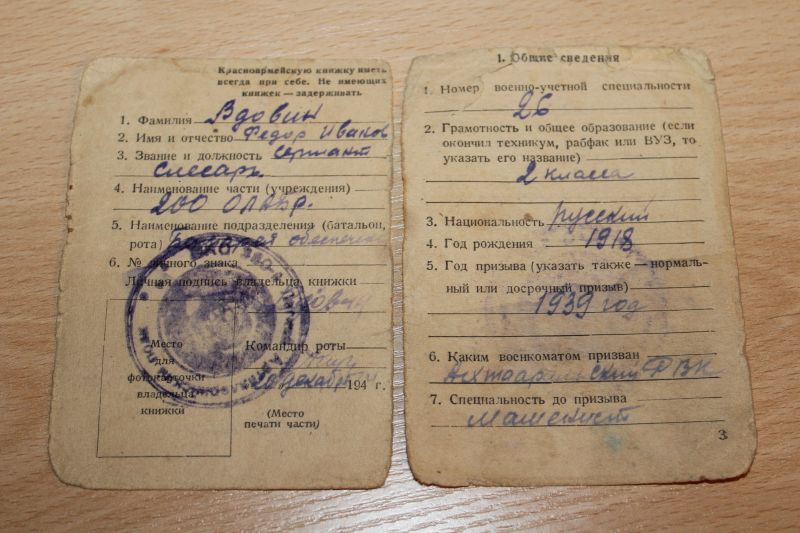 Красноармейскую книжку иметь
всегда при себе. Не имеющих
книжек — задерживать
1. Фамилия Вдовин
2. Имя и отчество Федор Иванов
3. Звание и должность сержант
слесарь
4. Наименование части (учреждения)
200
5. Наименование подразделения (батальон,
рота)
6. № личного знака
Личная подпись владельца книжки
Вдовин
Командир роты
20 декабря 194 г.
Место
для
фотокарточки
владельца
книжки
(Место
печати части)
1. Общие сведения
1. Номер военно-учетной специальности
26
2. Грамотность и общее образование (если
окончил техникум, рабфак или ВУЗ, то
указать его название)
2 класса
3. Национальность русский
4. Год рождения 1918
5. Год призыва (указать также — нормаль-
ный или досрочный призыв)
1939 год
6. Каким военкоматом призван
РВК
7. Специальность до призыва
Машенист
3